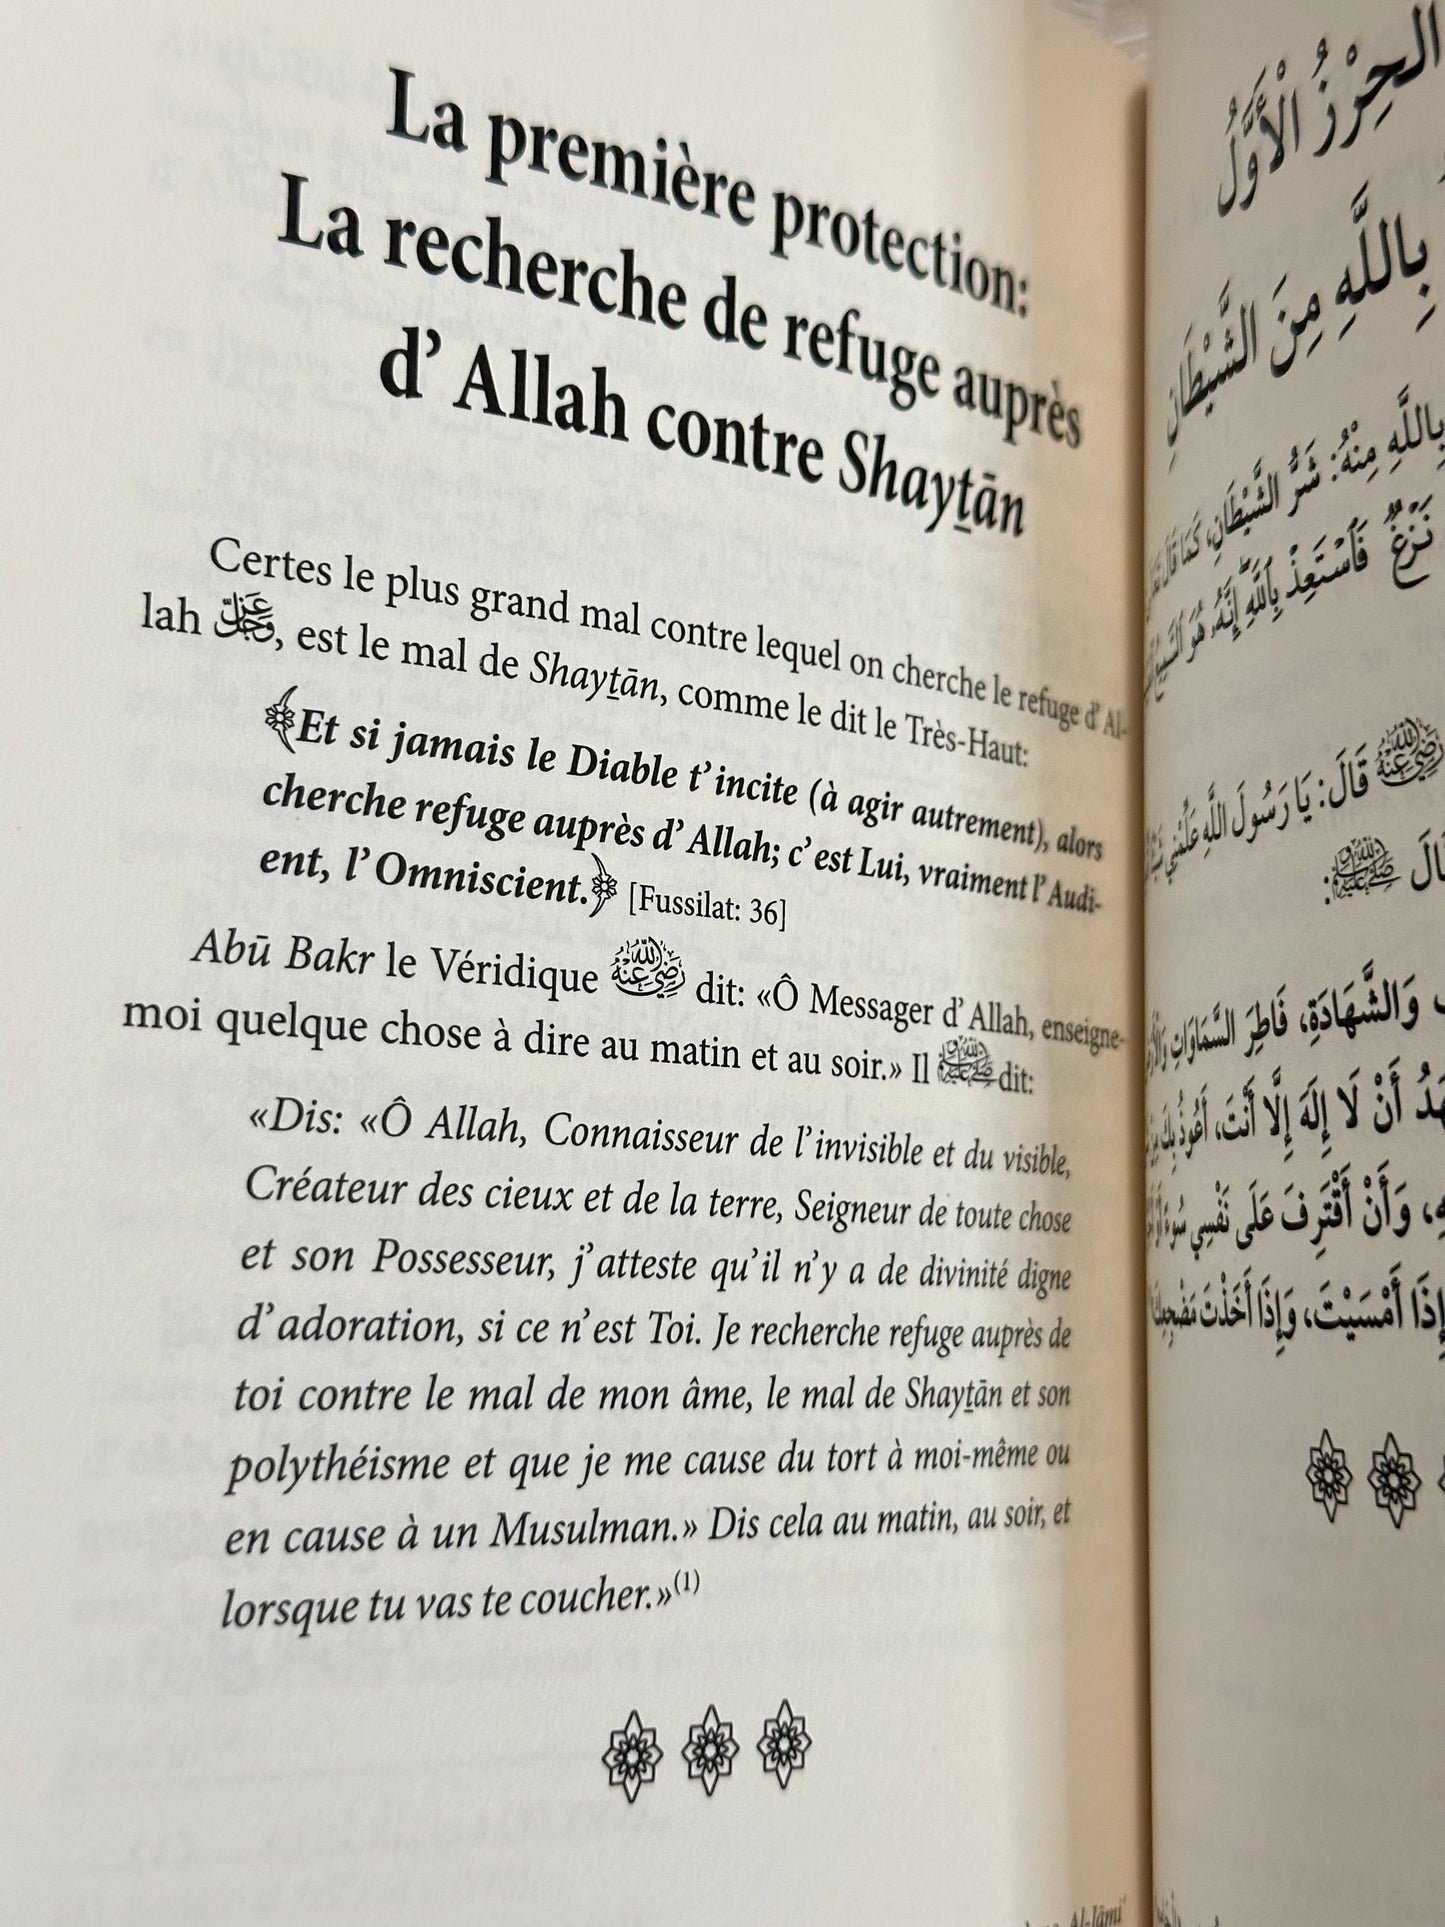 La première protection:
La recherche de refuge auprès
d’ Allah contre Shayṯān
Certes le plus grand mal contre lequel on cherche le refuge d’ Al-
lah عَزَّ وَجَلَّ, est le mal de Shayṯān, comme le dit le Très-Haut:
﴾Et si jamais le Diable t’incite (à agir autrement), alors
cherche refuge auprès d’ Allah; c’est Lui, vraiment l’Audi-
ent, l’Omniscient.﴿ [Fussilat: 36]
Abū Bakr le Véridique رَضِيَ اللَّهُ عَنْهُ dit: «Ô Messager d’ Allah, enseigne-
moi quelque chose à dire au matin et au soir.» Il ﷺ dit:
«Dis: «Ô Allah, Connaisseur de l’invisible et du visible,
Créateur des cieux et de la terre, Seigneur de toute chose
et son Possesseur, j’atteste qu’il n’y a de divinité digne
d’adoration, si ce n’est Toi. Je recherche refuge auprès de
toi contre le mal de mon âme, le mal de Shayṯān et son
polythéisme et que je me cause du tort à moi-même ou
en cause à un Musulman.» Dis cela au matin, au soir, et
lorsque tu vas te coucher.»(1)
Al-Jāmi‘
الحِرْزُ الْأَوَّلُ
بِاللَّهِ مِنَ الشَّيْطَانِ
بِاللَّهِ مِنْهُ: شَرُّ الشَّيْطَانِ، كَمَا قَالَ
نَزْغٌ فَاسْتَعِذْ بِاللَّهِ إِنَّهُ هُوَ السَّمِيعُ
رَضِيَ اللَّهُ عَنْهُ قَالَ: يَا رَسُولَ اللَّهِ عَلِّمْنِي
ﷺ:
وَالشَّهَادَةِ، فَاطِرَ السَّمَاوَاتِ
أَنْ لَا إِلَهَ إِلَّا أَنْتَ، أَعُوذُ بِكَ
وَأَنْ أَقْتَرِفَ عَلَى نَفْسِي سُوءًا
إِذَا أَمْسَيْتَ، وَإِذَا أَخَذْتَ مَضْجِعَكَ